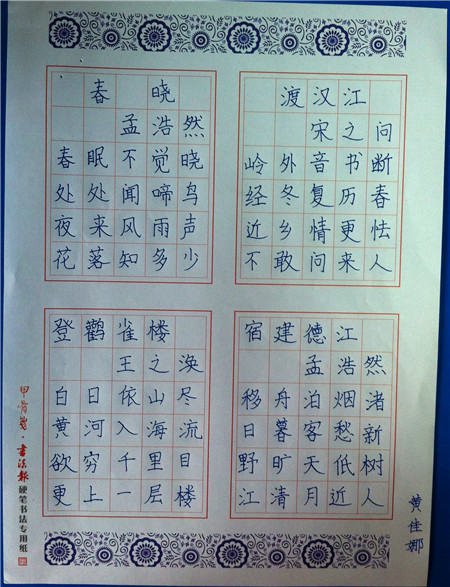 春晓
孟浩然
春眠不觉晓
处处闻啼鸟
夜来风雨声
花落知多少
渡汉江
宋之问
岭外音书断
经冬复历春
近乡情更怯
不敢问来人
登鹳雀楼
王之涣
白日依山尽
黄河入海流
欲穷千里目
更上一层楼
宿建德江
孟浩然
移舟泊烟渚
日暮客愁新
野旷天低树
江清月近人
书法报硬笔书法专用纸
黄佳娜